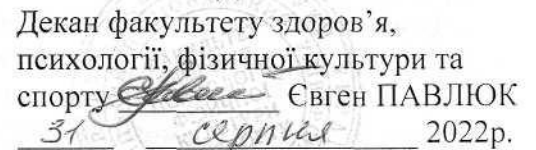 Декан факультету здоров’я,
психології, фізичної культури та
спорту Євген ПАВЛЮК
31 серпня 2022р.